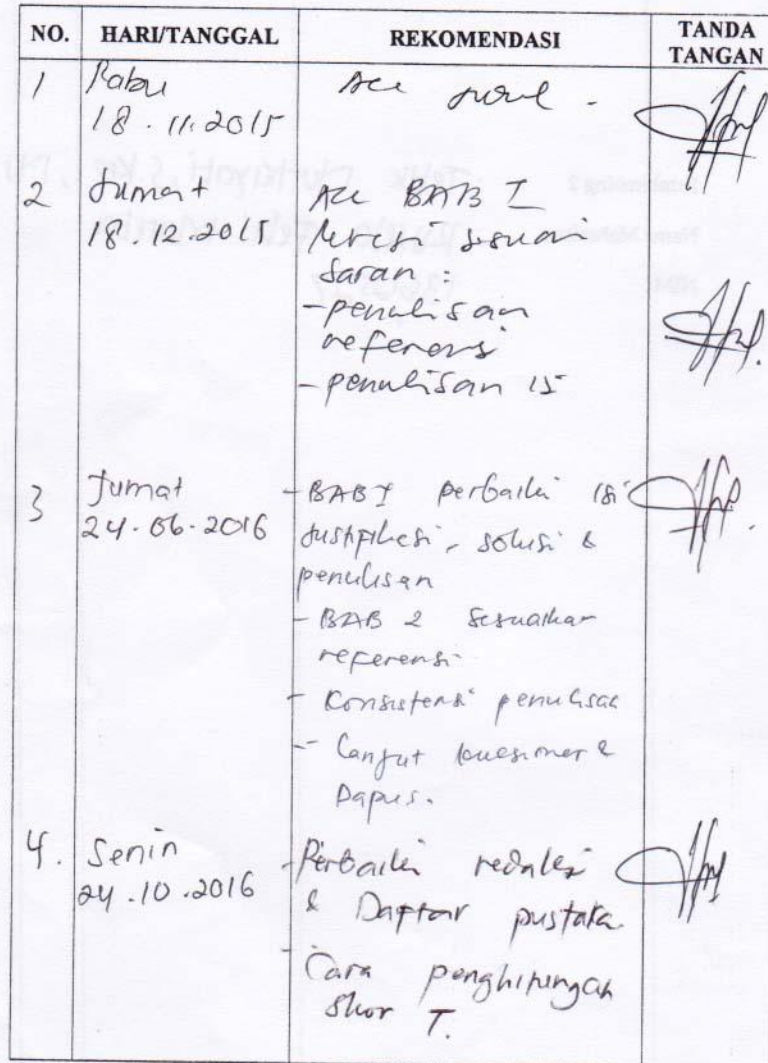 NO. HARI/TANGGAL REKOMENDASI TANDA TANGAN
1 Rabu Acc
18.11.2015
2 Jumat Acc BAB I
18.12.2015 Revisi sesuai
saran :
- penulisan
referensi
- penulisan
3 Jumat - BAB I perbaiki isi
24.06.2016 justifikasi, solusi &
penulisan
- BAB 2 sesuaikan
referensi
- Konsistensi penulisan
- Lanjut kuesioner &
Dapus.
4. Senin - Perbaiki redaksi
24.10.2016 & Daftar pustaka
- Cara penghitungan
skor T.